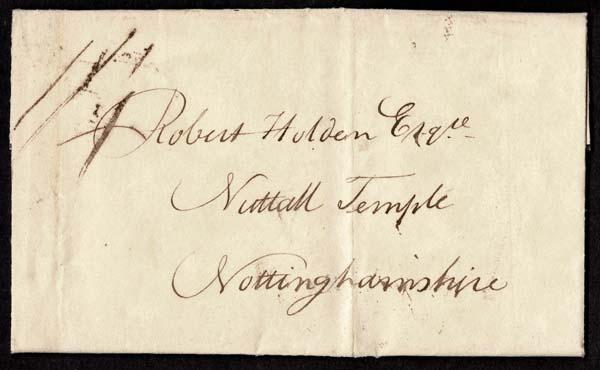 Robert Holden Esq.re
Nuttall Temple
Nottinghamshire